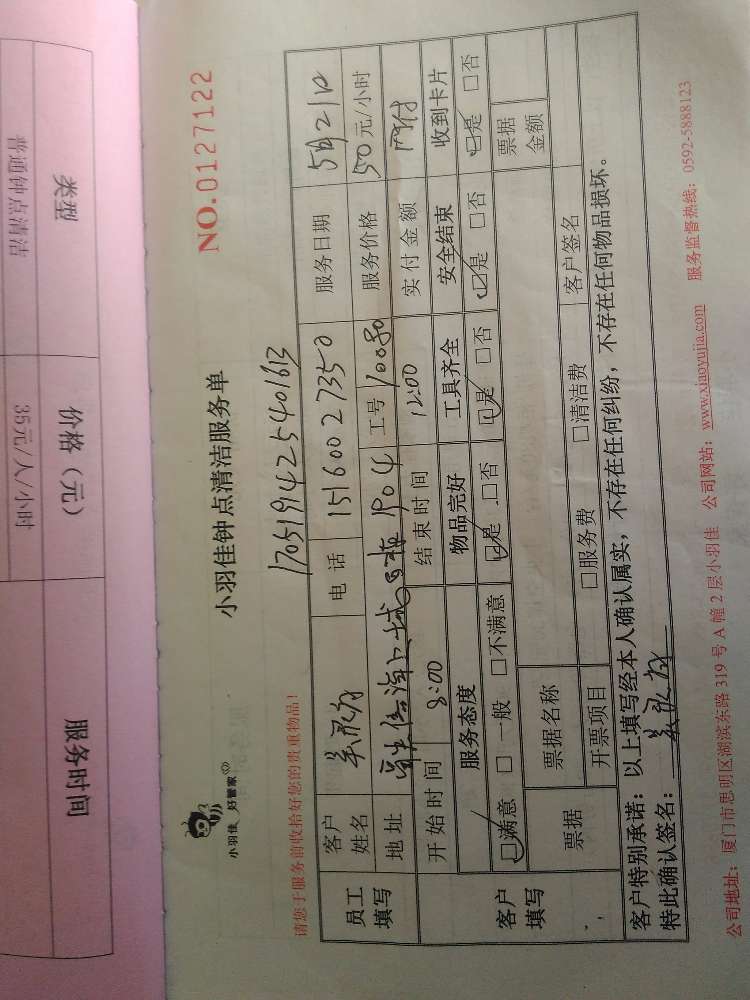 类型
价格（元）
服务时间
普通钟点清洁
35元/人/小时
小羽佳 好管家
小羽佳钟点清洁服务单
NO.0127122
170519142540 1613
请您于服务前收拾好您的贵重物品！
员工填写
客户姓名
电话
15160027350
服务日期
5月21日
地址
海上城
1904
工号
10080
服务价格
50元/小时
客户填写
开始时间
8:00
结束时间
12:00
实付金额
网付
服务态度
物品完好
工具齐全
安全结束
收到卡片
☑满意 □一般 □不满意
☑是 □否
☑是 □否
☑是 □否
☑是 □否
票据
票据名称
票据金额
开票项目
□服务费
□清洁费
客户签名
客户特别承诺：以上填写经本人确认属实，不存在任何纠纷，不存在任何物品损坏。
特此确认签名：
公司地址：厦门市思明区湖滨东路 319 号 A 幢 2 层小羽佳 公司网站：www.xiaoyujia.com 服务监督热线：0592-5888123